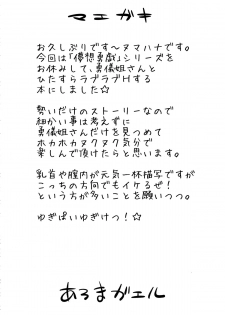 マエガキ
お久しぶりです～ヌマハナです。
今回は「儚想勇戯」シリーズを
お休みして、勇儀姐さんと
ひたすらラブラブHする
本にしました☆
勢いだけのストーリーなので
細かい事は考えずに
勇儀姐さんだけを見つめて
ホカホカヌクヌク気分で
楽しんで頂けたらと思います。
乳首や腹内が元気一杯描写ですが
こっちの方向でもイケるぜ!
という方が多いことを願いつつ。
ゆぎぱいゆぎけつ!☆
あるまがエル